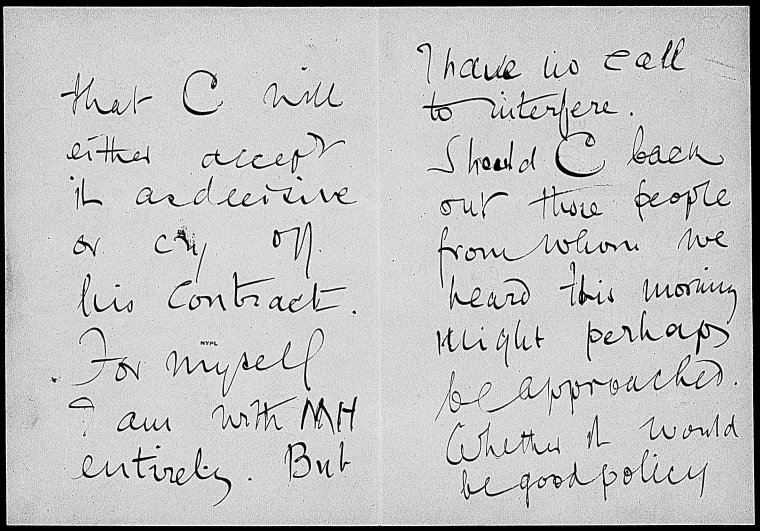 that C will
either accept
it as decisive
or cry off
his contract.
NYPL
For myself
I am with MH
entirely. But
I have no call
to interfere.
Should C back
out those people
from whom we
heard this morning
might perhaps
be approached.
Whether it would
be good policy